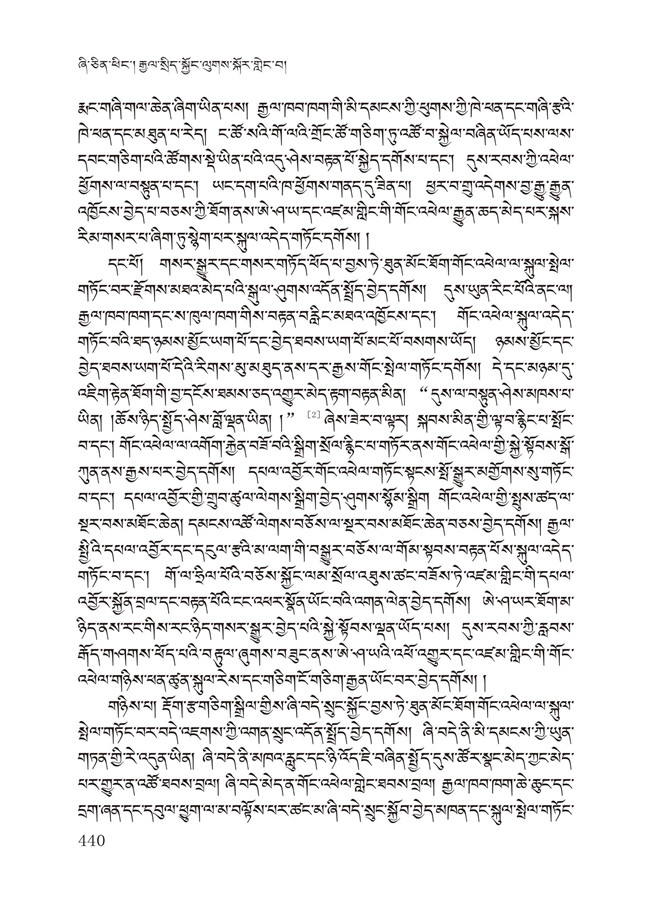 ཞི་ཅིན་ཕིང་། རྒྱལ་སྲིད་སྐྱོང་ལུགས་སྐོར་གླེང་བ།
རྨང་གཞི་གལ་ཆེན་ཞིག་ཡིན་པས། རྒྱལ་ཁབ་ཁག་གི་མི་དམངས་ཀྱི་ཕུགས་ཀྱི་ཁེ་ཕན་དང་གཞི་རྩའི་
ཁེ་ཕན་དང་མཐུན་པ་རེད། ང་ཚོ་སའི་གོ་ལའི་གྲོང་ཚོ་གཅིག་ཏུ་འཚོ་བ་སྐྱེལ་བཞིན་ཡོད་པས་ལས་
དབང་གཅིག་པའི་ཚོགས་སྡེ་ཡིན་པའི་འདུ་ཤེས་བརྟན་པོ་སྐྱེད་དགོས་པ་དང་། དུས་རབས་ཀྱི་འཕེལ་
ཕྱོགས་ལ་བསྟུན་པ་དང་། ཡང་དག་པའི་ཁ་ཕྱོགས་གནད་དུ་ཟིན་པ། ཕྱར་བ་གྲུ་འདེགས་བྱ་རྒྱུ་རྒྱུན་
འཁྱོངས་བྱེད་པ་བཅས་ཀྱི་ཐོག་ནས་ཨེ་ཤ་ཡ་དང་འཛམ་གླིང་གི་གོང་འཕེལ་རྒྱུན་ཆད་མེད་པར་སྐས་
རིམ་གསར་པ་ཞིག་ཏུ་སྙེག་པར་སྐུལ་འདེད་གཏོང་དགོས། །
དང་པོ། གསར་སྒྱུར་དང་གསར་གཏོད་ཕོད་པ་བྱས་ཏེ་ཐུན་མོང་ཐོག་གོང་འཕེལ་ལ་སྐུལ་སྤེལ་
གཏོང་བར་རྫོགས་མཐའ་མེད་པའི་སྒུལ་ཤུགས་འདོན་སྤྲོད་བྱེད་དགོས། དུས་ཡུན་རིང་པོའི་ནང་ལ།
རྒྱལ་ཁབ་ཁག་དང་ས་ཁུལ་ཁག་གིས་བརྟན་བརླིང་མཐའ་འཁྱོངས་དང་། གོང་འཕེལ་སྐུལ་འདེད་
གཏོང་བའི་ཐད་ཉམས་མྱོང་ཡག་པོ་དང་བྱེད་ཐབས་ཡག་པོ་མང་པོ་བསགས་ཡོད། ཉམས་མྱོང་དང་
བྱེད་ཐབས་ཡག་པོ་དེའི་རིགས་མུ་མཐུད་ནས་དར་རྒྱས་གོང་སྤེལ་གཏོང་དགོས། དེ་དང་མཉམ་དུ་
འཇིག་རྟེན་ཐོག་གི་བྱ་དངོས་ཐམས་ཅད་འགྱུར་མེད་རྟག་བརྟན་མིན། “དུས་ལ་བསྟུན་ཤེས་མཁས་པ་
ཡིན། །ཆོས་ཉིད་སྤྱོད་ཤེས་བློ་ལྡན་ཡིན། །” [2] ཞེས་ཟེར་བ་ལྟར། སྐབས་མིན་གྱི་ལྟ་བ་རྙིང་པ་སྤོང་
བ་དང་། གོང་འཕེལ་ལ་འགོག་རྐྱེན་བཟོ་བའི་སྒྲིག་སྲོལ་རྙིང་པ་གཏོར་ནས་གོང་འཕེལ་གྱི་སྐྱེ་སྟོབས་སྒོ་
ཀུན་ནས་རྒྱས་པར་བྱེད་དགོས། དཔལ་འབྱོར་གོང་འཕེལ་གཏོང་སྟངས་སྤོ་སྒྱུར་མགྱོགས་སུ་གཏོང་
བ་དང་། དཔལ་འབྱོར་གྱི་གྲུབ་ཚུལ་ལེགས་སྒྲིག་བྱེད་ཤུགས་སྙོམ་སྒྲིག གོང་འཕེལ་གྱི་སྤུས་ཚད་ལ་
སྔར་བས་མཐོང་ཆེན། དམངས་འཚོ་ལེགས་བཅོས་ལ་སྔར་བས་མཐོང་ཆེན་བཅས་བྱེད་དགོས། རྒྱལ་
སྤྱིའི་དཔལ་འབྱོར་དང་དངུལ་རྩའི་མ་ལག་གི་བསྒྱུར་བཅོས་ལ་གོམ་སྟབས་བརྟན་པོས་སྐུལ་འདེད་
གཏོང་བ་དང་། གོ་ལ་ཧྲིལ་པོའི་བཅོས་སྐྱོང་ལམ་སྲོལ་འཐུས་ཚང་བཟོས་ཏེ་འཛམ་གླིང་གི་དཔལ་
འབྱོར་སྐྱོན་བྲལ་དང་བརྟན་པོའི་ངང་འཕར་སྣོན་ཡོང་བའི་འགན་ལེན་བྱེད་དགོས། ཨེ་ཤ་ཡར་ཐོག་མ་
ཉིད་ནས་རང་གིས་རང་ཉིད་གསར་སྒྱུར་བྱེད་པའི་སྐྱེ་སྟོབས་ལྡན་ཡོད་པས། དུས་རབས་ཀྱི་རླབས་
རྒོད་གཤགས་ཕོད་པའི་བརྟུལ་ཞུགས་བཟུང་ནས་ཨེ་ཤ་ཡའི་འཕོ་འགྱུར་དང་འཛམ་གླིང་གི་གོང་
འཕེལ་གཉིས་ཕན་ཚུན་སྐུལ་རེས་དང་གཅིག་ངོ་གཅིག་རྒྱན་ཡོང་བར་བྱེད་དགོས། །
གཉིས་པ། རྡོག་རྩ་གཅིག་སྒྲིལ་གྱིས་ཞི་བདེ་སྲུང་སྐྱོང་བྱས་ཏེ་ཐུན་མོང་ཐོག་གོང་འཕེལ་ལ་སྐུལ་
སྤེལ་གཏོང་བར་བདེ་འཇགས་ཀྱི་འགན་སྲུང་འདོན་སྤྲོད་བྱེད་དགོས། ཞི་བདེ་ནི་མི་དམངས་ཀྱི་ཡུན་
གཏན་གྱི་རེ་འདུན་ཡིན། ཞི་བདེ་ནི་མཁའ་རླུང་དང་ཉི་འོད་ཇི་བཞིན་སྤྱོད་དུས་ཚོར་སྣང་མེད་ཀྱང་མེད་
པར་གྱུར་ན་འཚོ་ཐབས་བྲལ། ཞི་བདེ་མེད་ན་གོང་འཕེལ་གླེང་ཐབས་བྲལ། རྒྱལ་ཁབ་ཁག་ཆེ་ཆུང་དང་
དྲག་ཞན་དང་དབུལ་ཕྱུག་ལ་མ་བལྟོས་པར་ཚང་མ་ཞི་བདེ་སྲུང་སྐྱོབ་བྱེད་མཁན་དང་སྐུལ་སྤེལ་གཏོང་
440